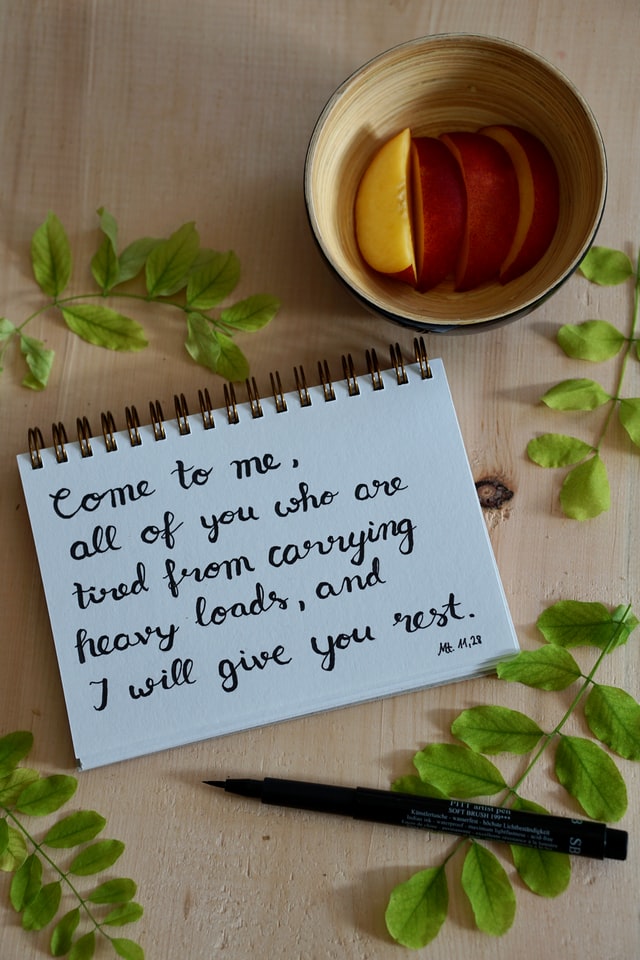 Come to me,
all of you who are
tired from carrying
heavy loads, and
I will give you rest.
Mt. 11,28
PITT artist pen
SOFT BRUSH 199***
SB